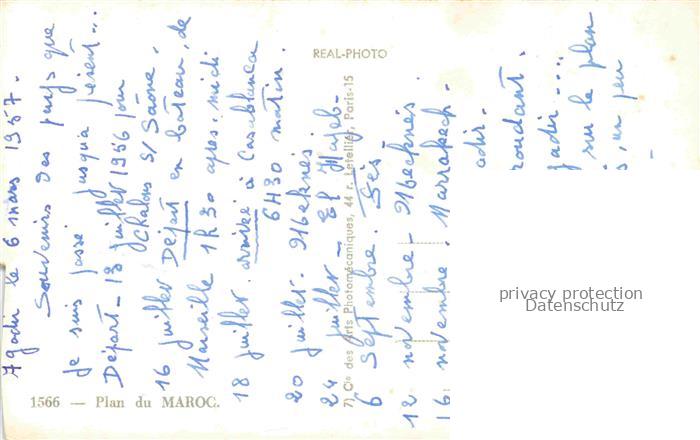 Agadir le 6 mars 1957.
Souvenirs des pays que
je suis passé jusqu'a présent...
Départ - 13 juillet 1956 pour
Chalons s/ Saône.
16 juillet Départ en bateau, de
Marseille 1h30 après-midi
18 juillet. arrivée à Casablanca
6H30 matin.
20 juillet. Meknés
24 juillet - El Hajeb-
6 Septembre.
12 novembre - Meknés
16 novembre. Marrakech.
adir.
roudant.
gadir...
sur le plan
s, un peu
REAL-PHOTO
7) Cie des Arts Photomécaniques, 44 r. Letellier, Paris-15
1566 — Plan du MAROC.
privacy protection
Datenschutz